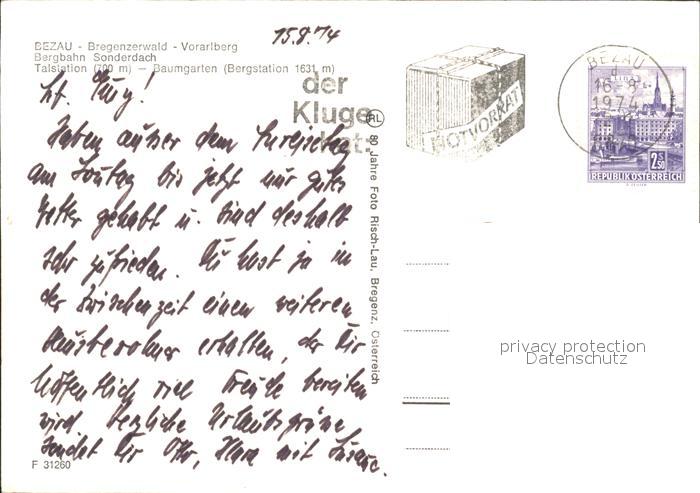 15.8.74
BEZAU - Bregenzerwald - Vorarlberg
Bergbahn Sonderdach
Talstation (700 m) — Baumgarten (Bergstation 1631 m)
der
Kluge
hat:
NOTVORRAT
BEZAU
16.-8.
1974
LINZ
2.50
S
REPUBLIK ÖSTERREICH
Haben ausser dem
am Sonntag bis jetzt nur gutes
Wetter gehabt u. sind deshalb
sehr zufrieden. Du hast ja in
der Zwischenzeit einen weiteren
Hausbewohner erhalten, der Dir
hoffentlich viel Freude bereiten
wird. Herzliche Urlaubsgrüße
sendet Dir Otto, mit
RL
80 Jahre Foto Risch-Lau, Bregenz, Österreich
F 31260
privacy protection
Datenschutz